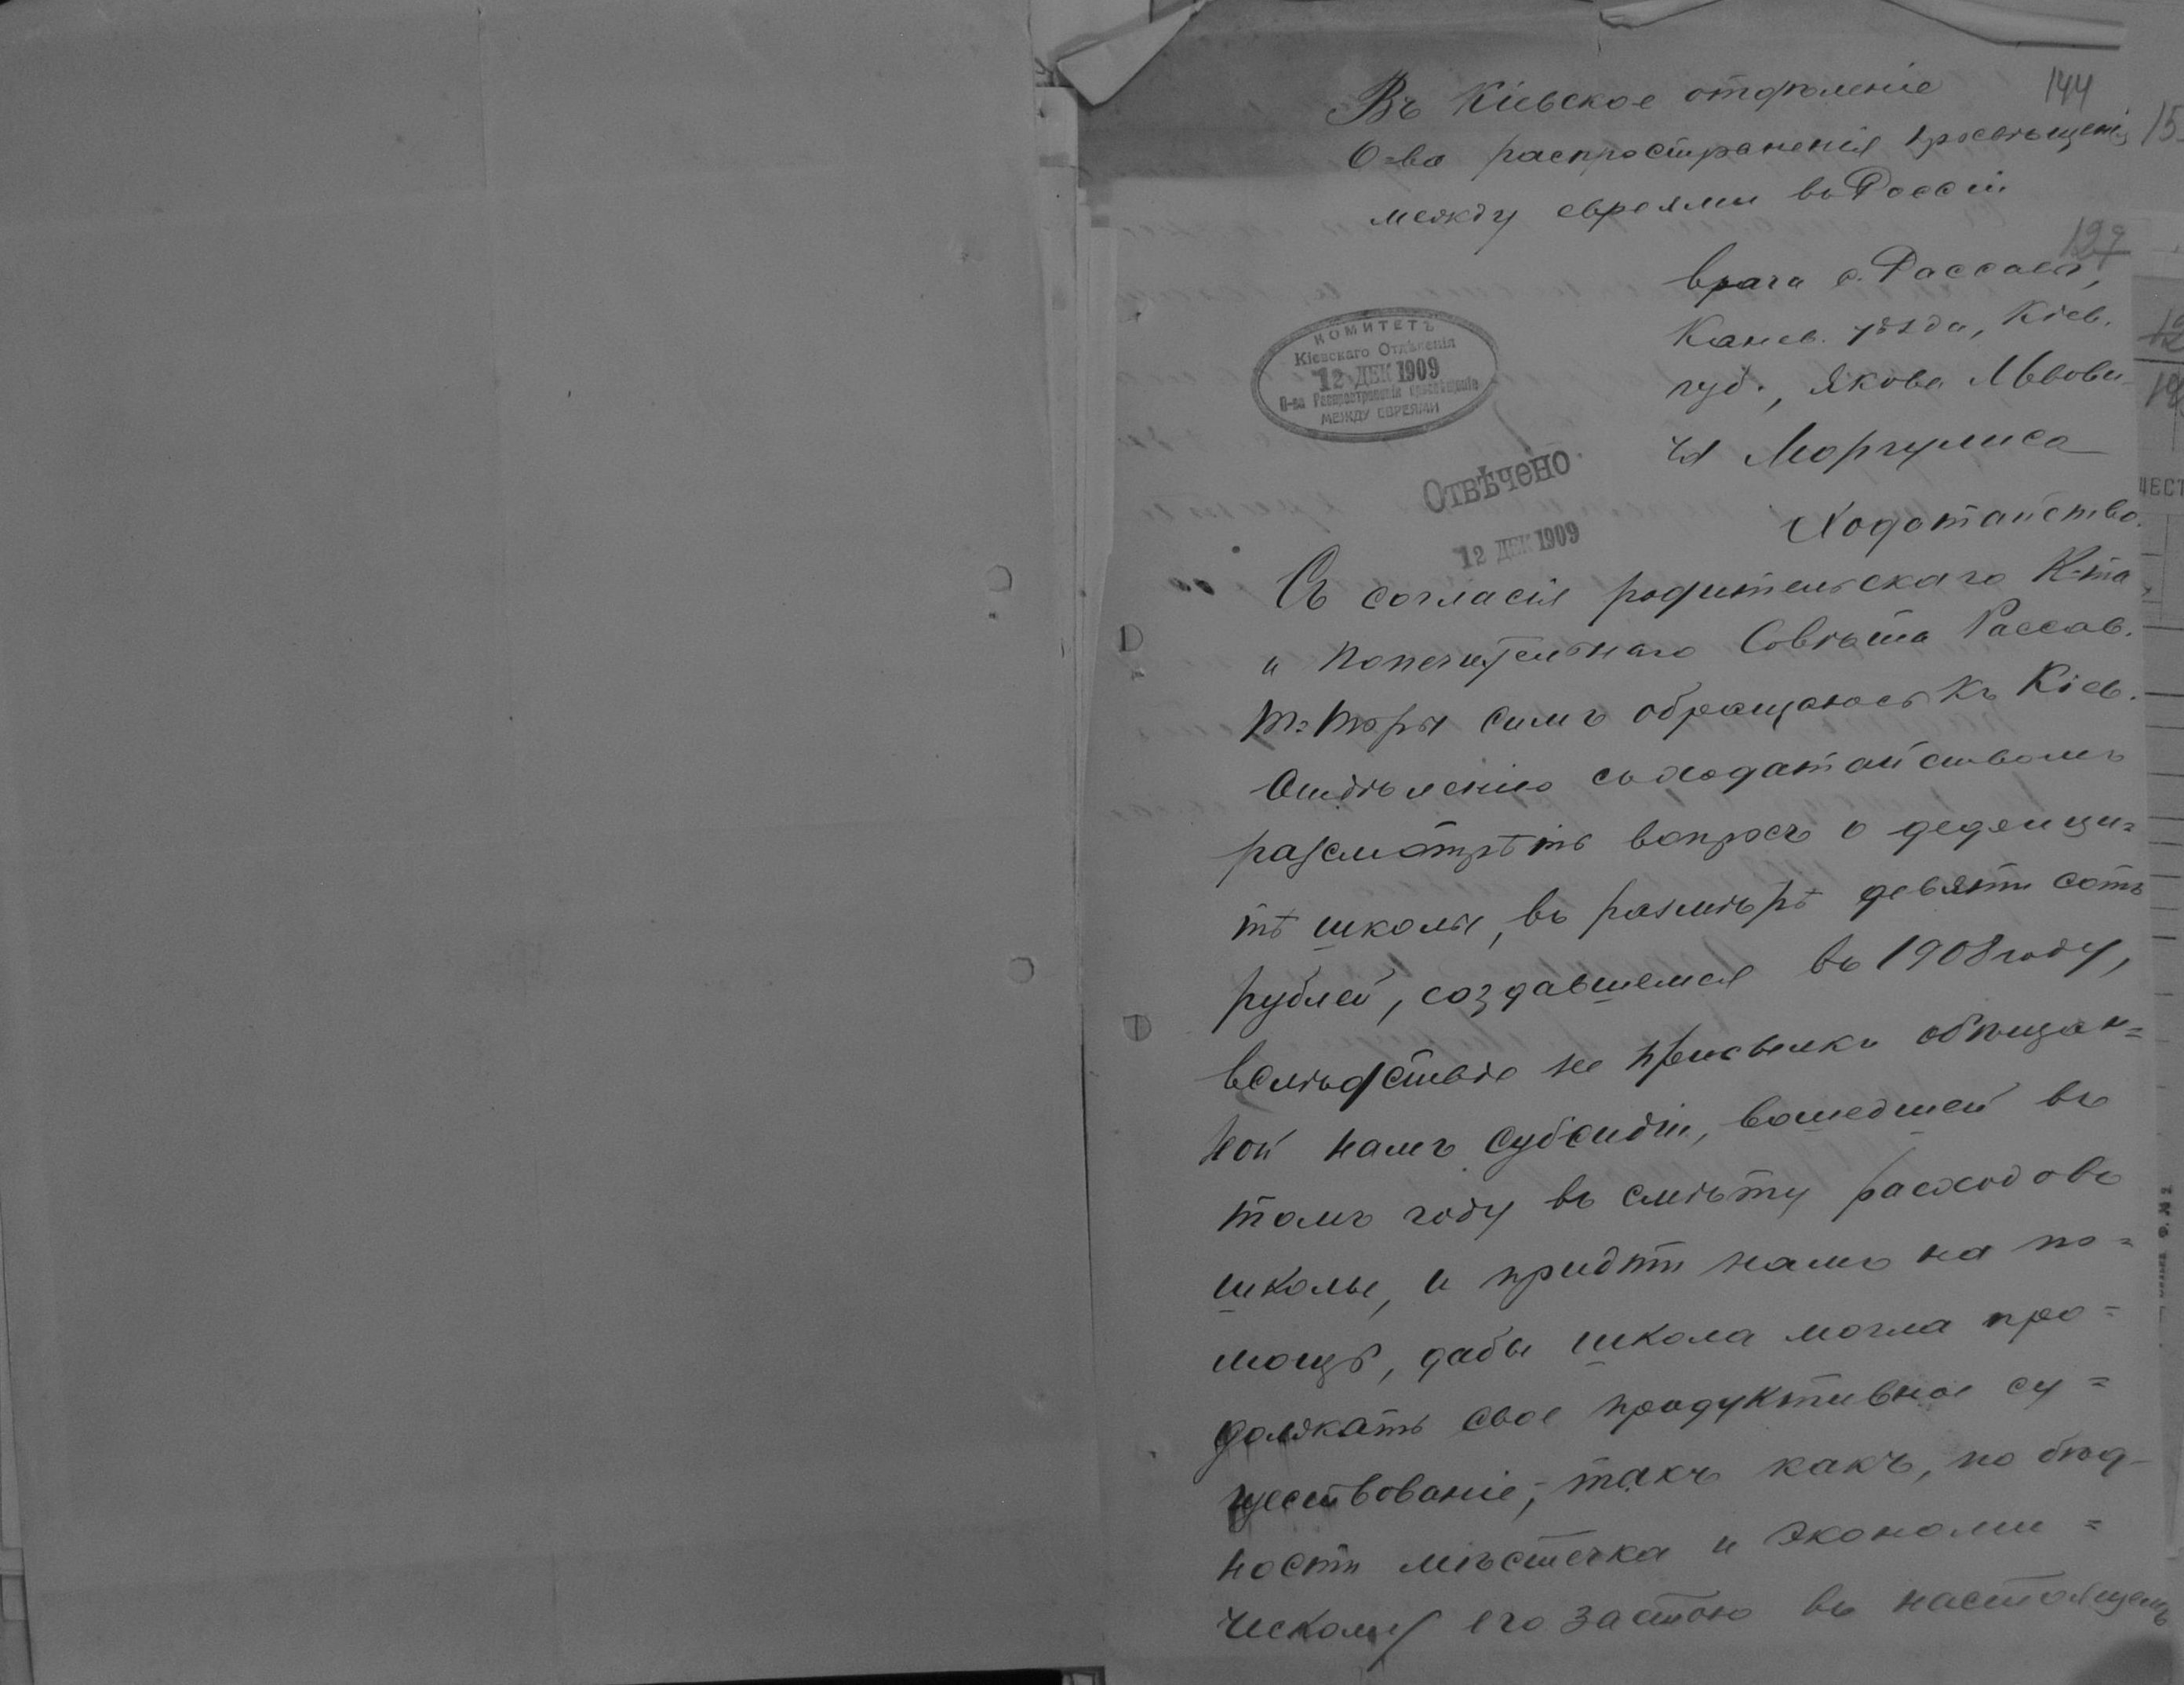 144
Въ Кіевское отдѣленіе
О-ва распространенія просвѣщенія
между евреями въ Россіи
врача с. Рассавы,
Канев. уѣзда, Кіев.
губ., Якова Львови-
ча Моргулиса
КОМИТЕТЪ
Кіевскаго Отдѣленія
12 ДЕК 1909
О-ва Распространенія Просвѣщенія
МЕЖДУ ЕВРЕЯМИ
Отвѣчено
12 ДЕК 1909
Ходатайство.
Съ согласія родительскаго К-та
и Попечительнаго Совѣта Рассав.
Т=Торы симъ обращаюсь къ Кіев.
Отдѣленію съ ходатайствомъ
разсмотрѣть вопросъ о дефици=
тѣ школы, въ размѣрѣ девяти сотъ
рублей, создавшемся въ 1908 году,
вслѣдствіе не присылки обѣщан=
ной намъ субсидіи, вошедшей въ
томъ году въ смѣту расходовъ
школы, и придти намъ на по=
мощь, дабы школа могла про=
должать свое продуктивное су=
ществованіе, такъ какъ, по бѣд-
ности мѣстечка и экономи=
ческому его застою въ настоящемъ